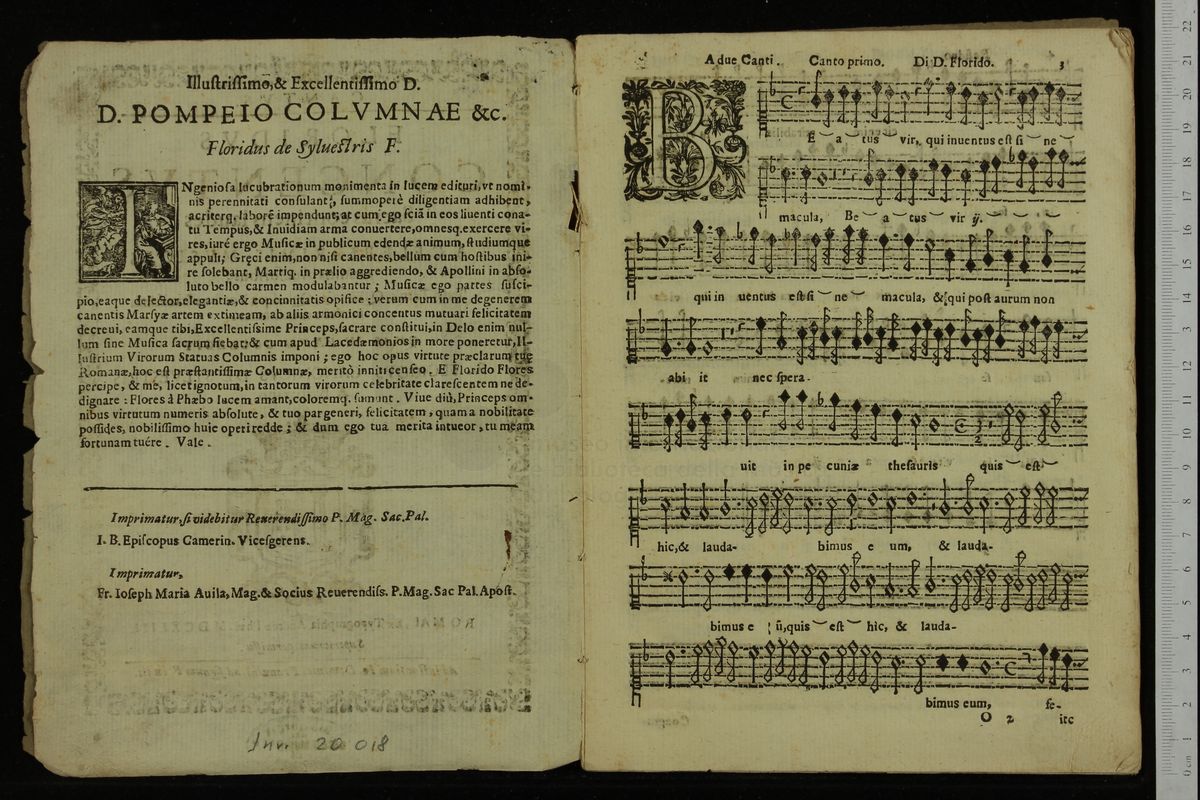 Illustrissimo, & Excellentissimo D.
D. POMPEIO COLVMNAE &c.
Floridus de Syluestris F.
INgeniosa lucubrationum monimenta in lucem edituri, vt nomi-
nis perennitati consulant, summoperè diligentiam adhibent,
acriterq. laborē impendunt; at cum ego sciā in eos liuenti cona-
tu Tempus, & Inuidiam arma conuertere, omnesq. exercere vi-
res, iurè ergo Musicæ in publicum edendæ animum, studiumque
appuli; Gręci enim, non nisi canentes, bellum cum hostibus ini-
re solebant, Martiq. in prælio aggrediendo, & Apollini in abso-
luto bello carmen modulabantur; Musicæ ego partes susci-
pio, eaque delector, elegantiæ, & concinnitatis opifice; verum cum in me degenerem
canentis Marsyæ artem extimeam, ab aliis armonici concentus mutuari felicitatem
decreui, eamque tibi, Excellentissime Princeps, sacrare constitui, in Delo enim nul-
lum sine Musica sacrum fiebat; & cum apud Lacedæmonios in more poneretur, Il-
lustrium Virorum Statuas Columnis imponi; ego hoc opus virtute præclarum tuę
Romanæ, hoc est præstantissimæ Columnæ, meritò inniti censeo. E Florido Flores
percipe, & me, licet ignotum, in tantorum virorum celebritate clarescentem ne de-
dignare: Flores à Phæbo lucem amant, coloremq. sumunt. Viue diù, Princeps om-
nibus virtutum numeris absolute, & tuo par generi, felicitatem, quam a nobilitate
possides, nobilissimo huic operi redde; & dum ego tua merita intueor, tu meam
fortunam tuére. Vale.
Imprimatur, si videbitur Reuerendissimo P. Mag. Sac. Pal.
I. B. Episcopus Camerin. Vicesgerens.
Imprimatur,
Fr. Ioseph Maria Auila, Mag. & Socius Reuerendiss. P. Mag. Sac Pal. Apost.
Inv. 20 018
A due Canti. Canto primo. Di D. Florido. 3
BE a tus vir, qui inuentus est si ne
macula, Be a tus vir ij.
qui in uentus est si ne macula, & qui post aurum non
abi it nec spera-
uit in pe cuniæ thesauris quis est
hic, & lauda- bimus e um, & lauda-
bimus e ū, quis est hic, & lauda-
bimus eum, fe-
O 2 itc